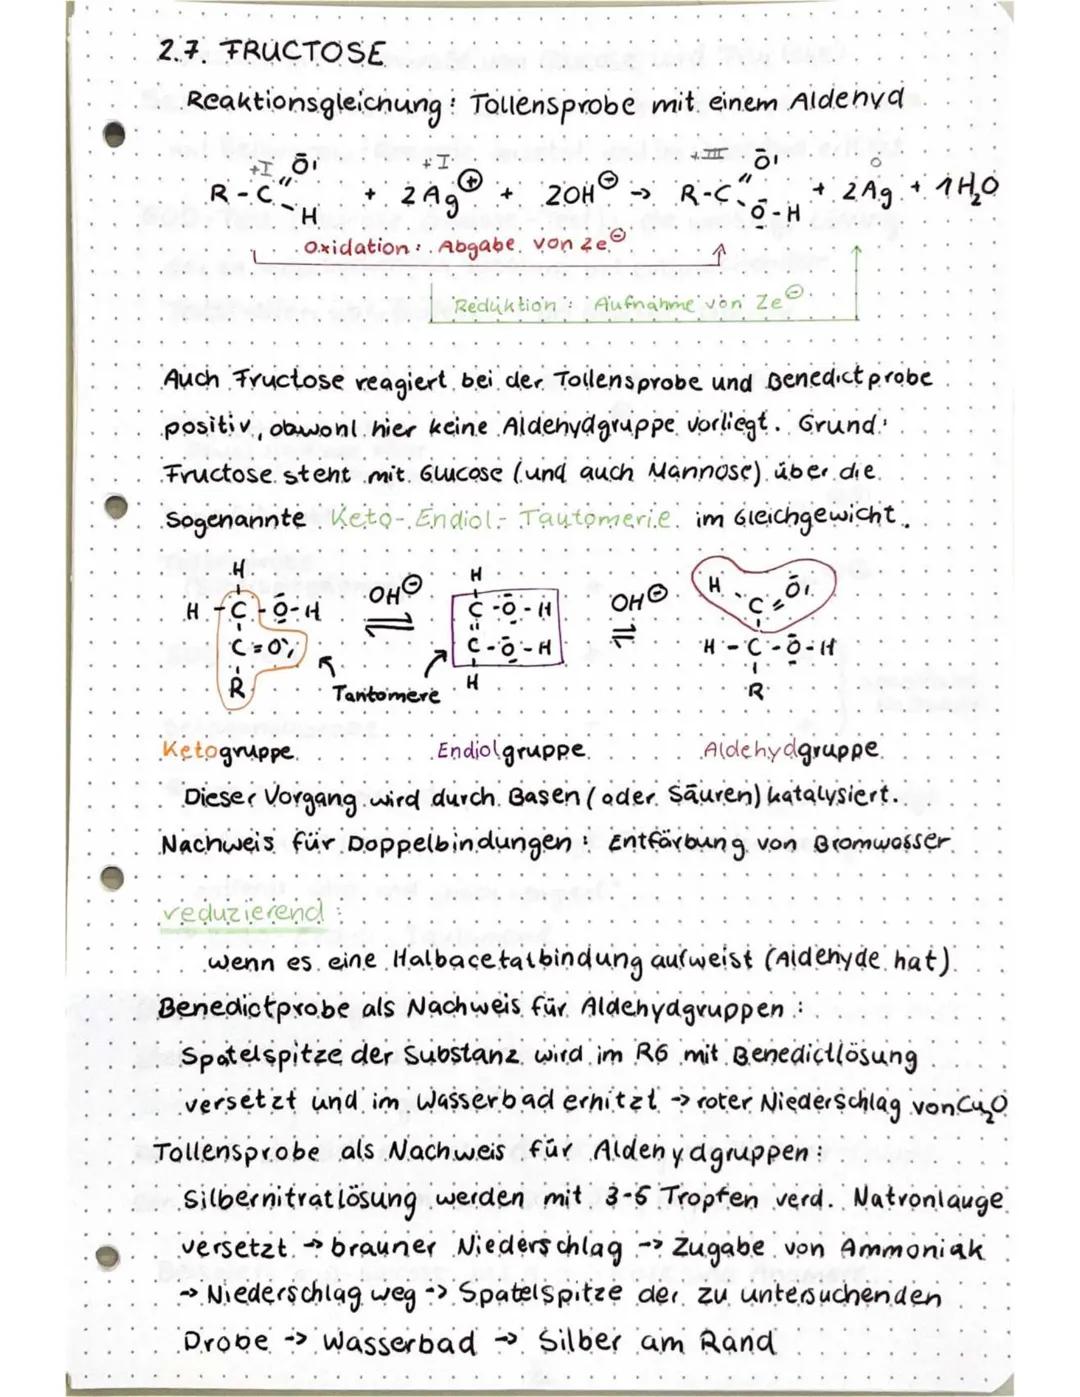 2.7. FRUCTOSE
Reaktionsgleichung: Tollensprobe mit einem Aldehyd
+I +I +III 0
R-C=O-H + 2Ag⊕ + 2OH⊖ → R-C=O-O-H + 2Ag + 1H₂O
Oxidation: Abgabe von 2e⊖
Reduktion: Aufnahme von 2e⊖
Auch Fructose reagiert bei der Tollensprobe und Benedictprobe
positiv, obwohl hier keine Aldehydgruppe vorliegt. Grund:
Fructose steht mit Glucose (und auch Mannose) über die
sogenannte Keto-Endiol-Tautomerie im Gleichgewicht.
H H H O
H-C-O-H OH⊖ ⇌ C-O-H OH⊖ ⇌ C
C=O C-O-H H-C-O-H
R Tautomere H R
Ketogruppe Endiolgruppe Aldehydgruppe
Dieser Vorgang wird durch Basen (oder Säuren) katalysiert.
Nachweis für Doppelbindungen: Entfärbung von Bromwasser
reduzierend:
wenn es eine Halbacetalbindung aufweist (Aldehyde hat)
Benedictprobe als Nachweis für Aldehydgruppen:
Spatelspitze der Substanz wird im RG mit Benedictlösung
versetzt und im Wasserbad erhitzt → roter Niederschlag von Cu₂O
Tollensprobe als Nachweis für Aldehydgruppen:
Silbernitratlösung werden mit 3-5 Tropfen verd. Natronlauge
versetzt → brauner Niederschlag → Zugabe von Ammoniak
→ Niederschlag weg → Spatelspitze der zu untersuchenden
Probe → Wasserbad → Silber am Rand